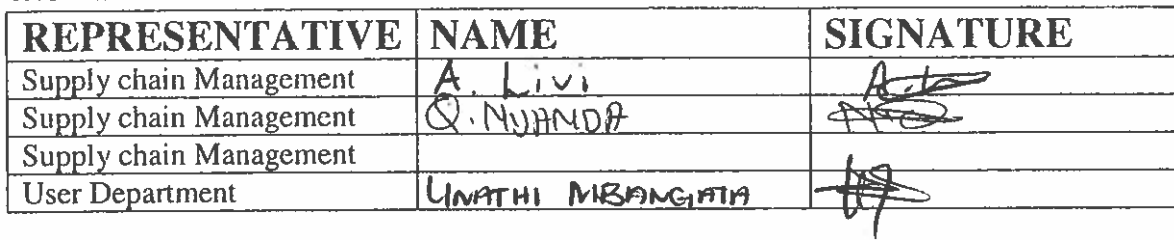 REPRESENTATIVE NAME SIGNATURE
Supply chain Management A. Livi
Supply chain Management
Supply chain Management
User Department UNATHI MBANGATA